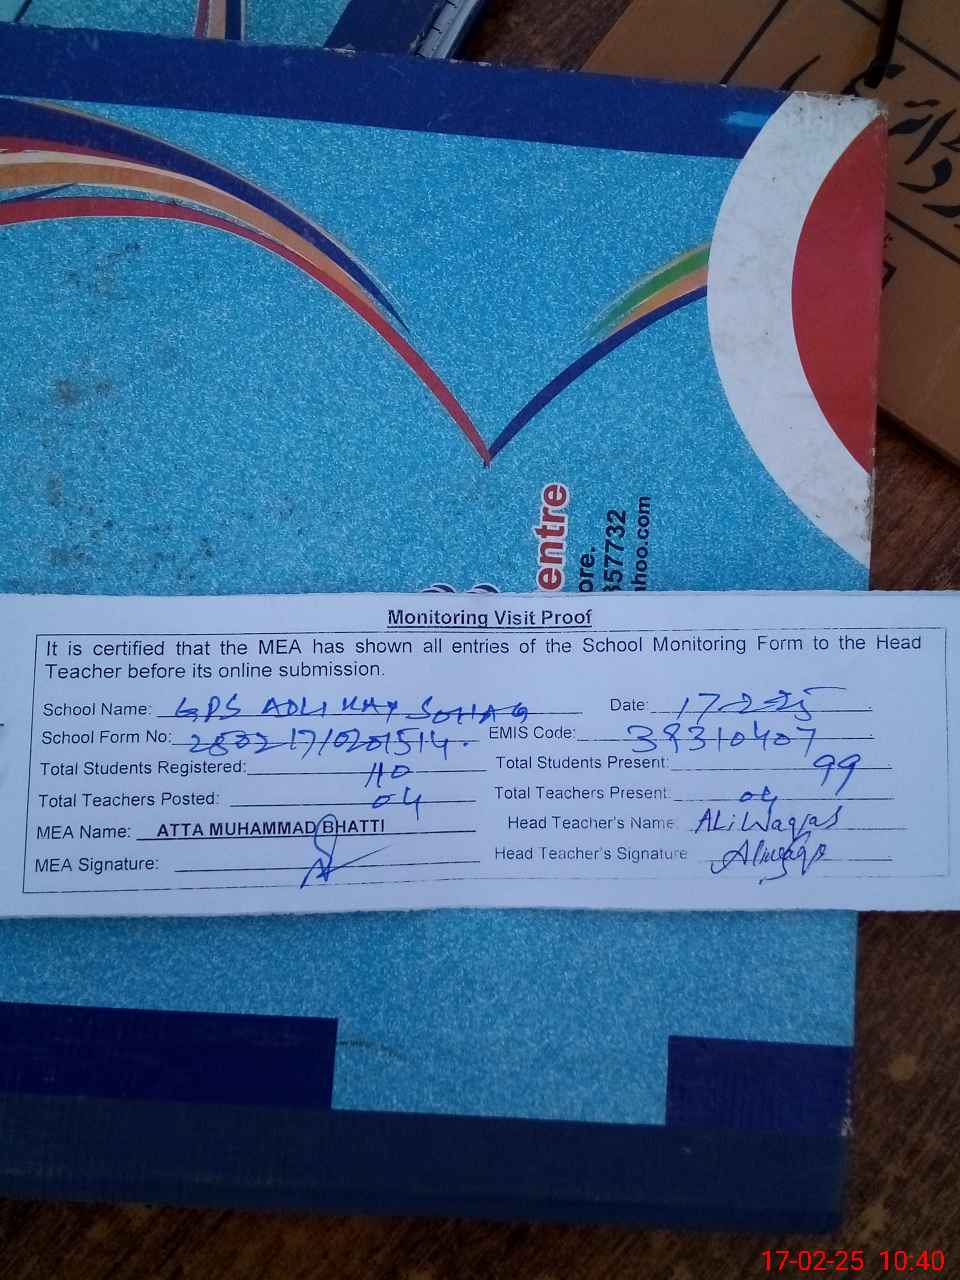 entre
ore.
357732
hoo.com
Monitoring Visit Proof
It is certified that the MEA has shown all entries of the School Monitoring Form to the Head
Teacher before its online submission.
School Name: GPS ADLI SOHAG Date: 17-2-25
School Form No: EMIS Code: 39310407
Total Students Registered: 110 Total Students Present: 99
Total Teachers Posted: 04 Total Teachers Present: 04
MEA Name: ATTA MUHAMMAD BHATTI Head Teacher's Name: ALi Waqas
MEA Signature: Head Teacher's Signature Aliwaqas
17-02-25 10:40